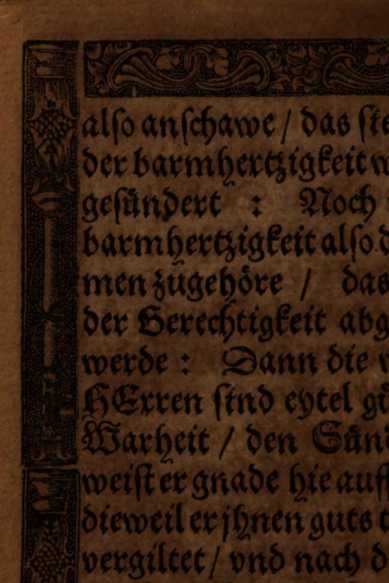 also anschawe / das ste
der barmhertzigkeit w
gesündert : Noch
barmhertzigkeit also d
men zůgehöre / das
der Gerechtigkeit abg
werde : Dann die
HErren sind eytel gü
Warheit / den Sün
weist er gnade hie auff
dieweil er jhnen guts t
vergiltet / vnd nach d